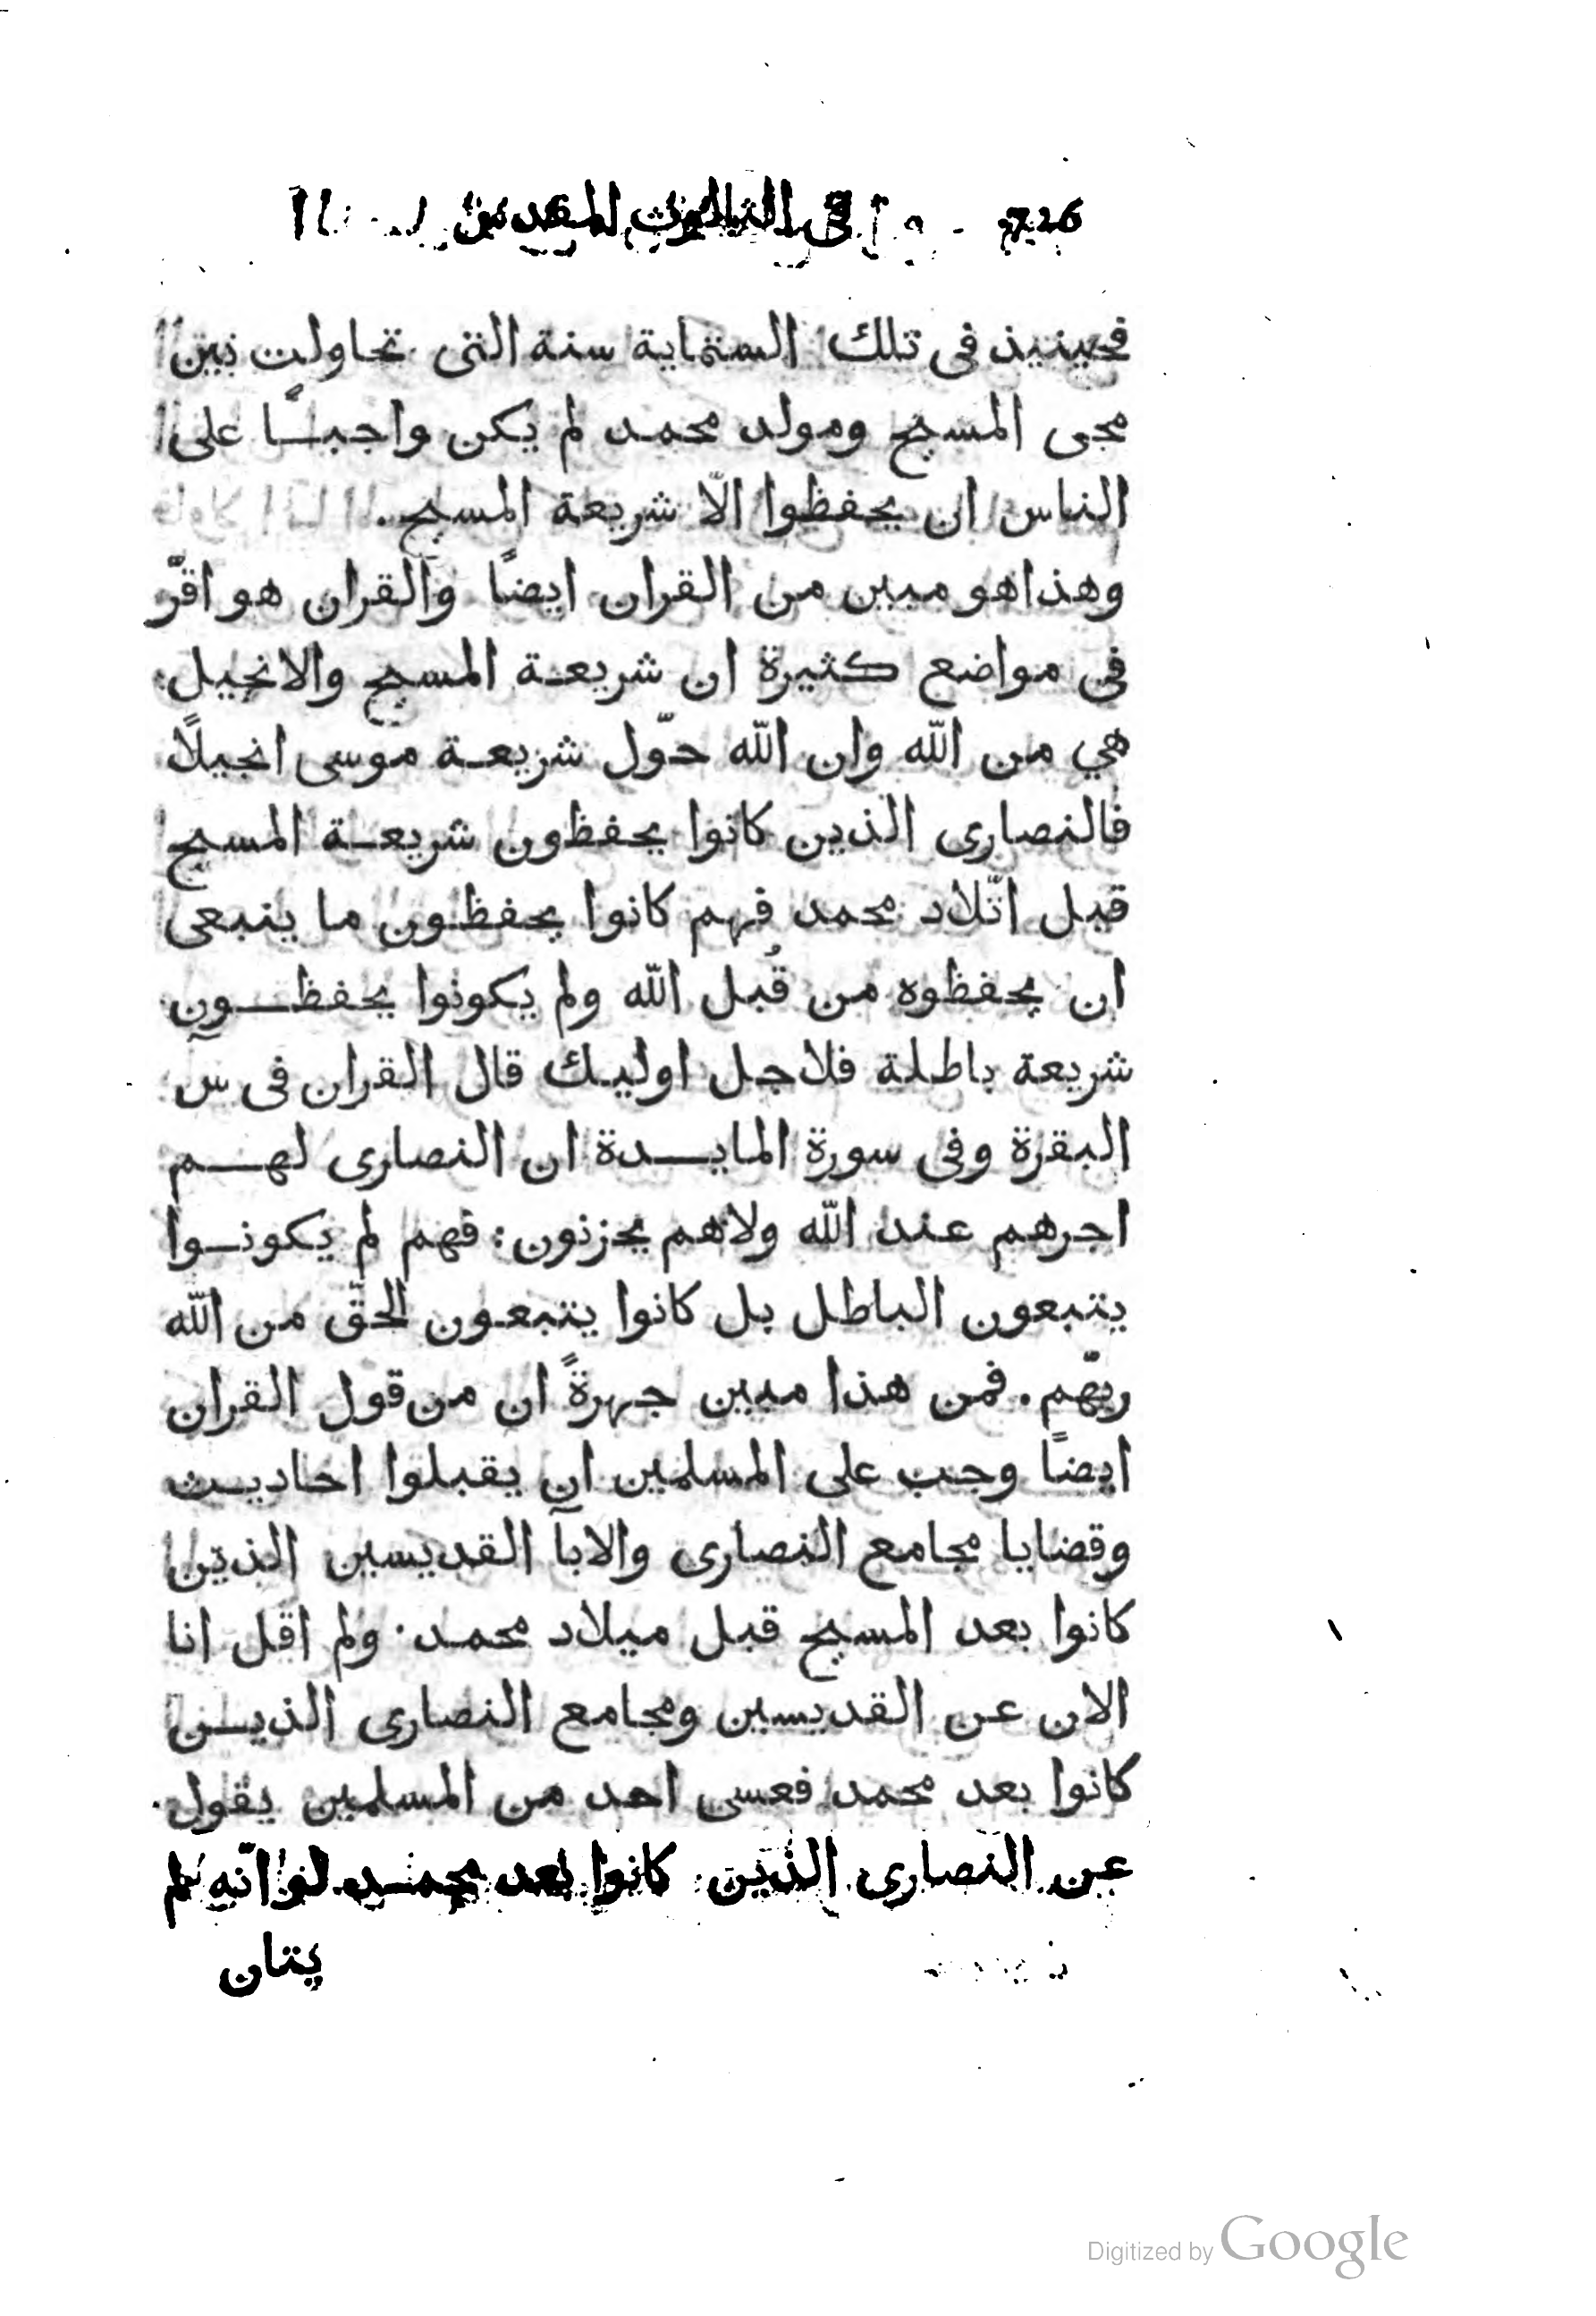 726 في الثالوث المقدس
فحينيذ في تلك الستماية سنة التي تحاولت بين
مجى المسيح ومولد محمد لم يكن واجبًا على
الناس ان يحفظوا الّا شريعة المسيح.
وهذا هو مبين من القران ايضًا والقران هو اقرّ
في مواضع كثيرة ان شريعة المسيح والانجيل
هي من الله وان الله حوّل شريعة موسى انجيلًا
فالنصارى الذين كانوا يحفظون شريعة المسيح
قبل اتّلاد محمد فهم كانوا يحفظون ما ينبعى
ان يحفظوه من قُبل الله ولم يكونوا يحفظون
شريعة باطلة فلاجل اوليك قال القران في س
البقرة وفى سورة المايدة ان النصارى لهم
اجرهم عند الله ولاهم يحزنون: فهم لم يكونوا
يتبعون الباطل بل كانوا يتبعون الحقّ من الله
ربّهم. فمن هذا مبين جهرةً ان من قول القران
ايضًا وجب على المسلمين ان يقبلوا احاديث
وقضايا مجامع النصارى والابآ القديسين الذين
كانوا بعد المسيح قبل ميلاد محمد. ولم اقل انا
الان عن القديسين ومجامع النصارى الذين
كانوا بعد محمد فعسى احد من المسلمين يقول
عن النصارى الذين كانوا بعد محمد لو انّه لم
يتان
Digitized by Google